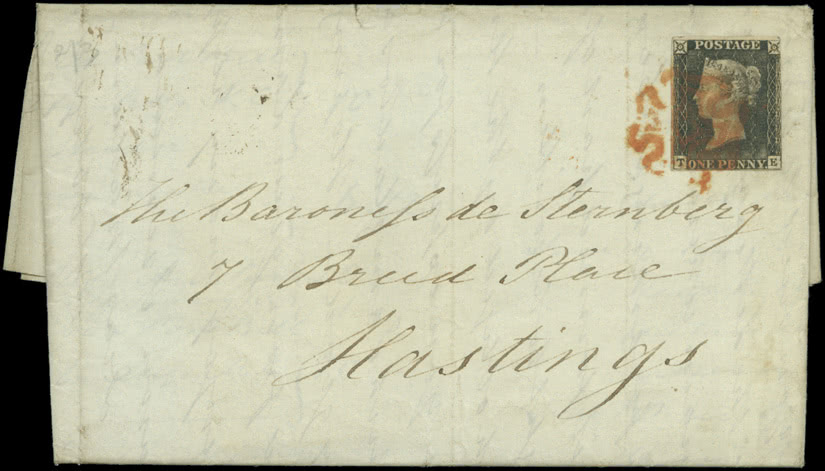 POSTAGE
T ONE PENNY. E
The Baroneſs de Sternberg
7 Breed Place
Hastings